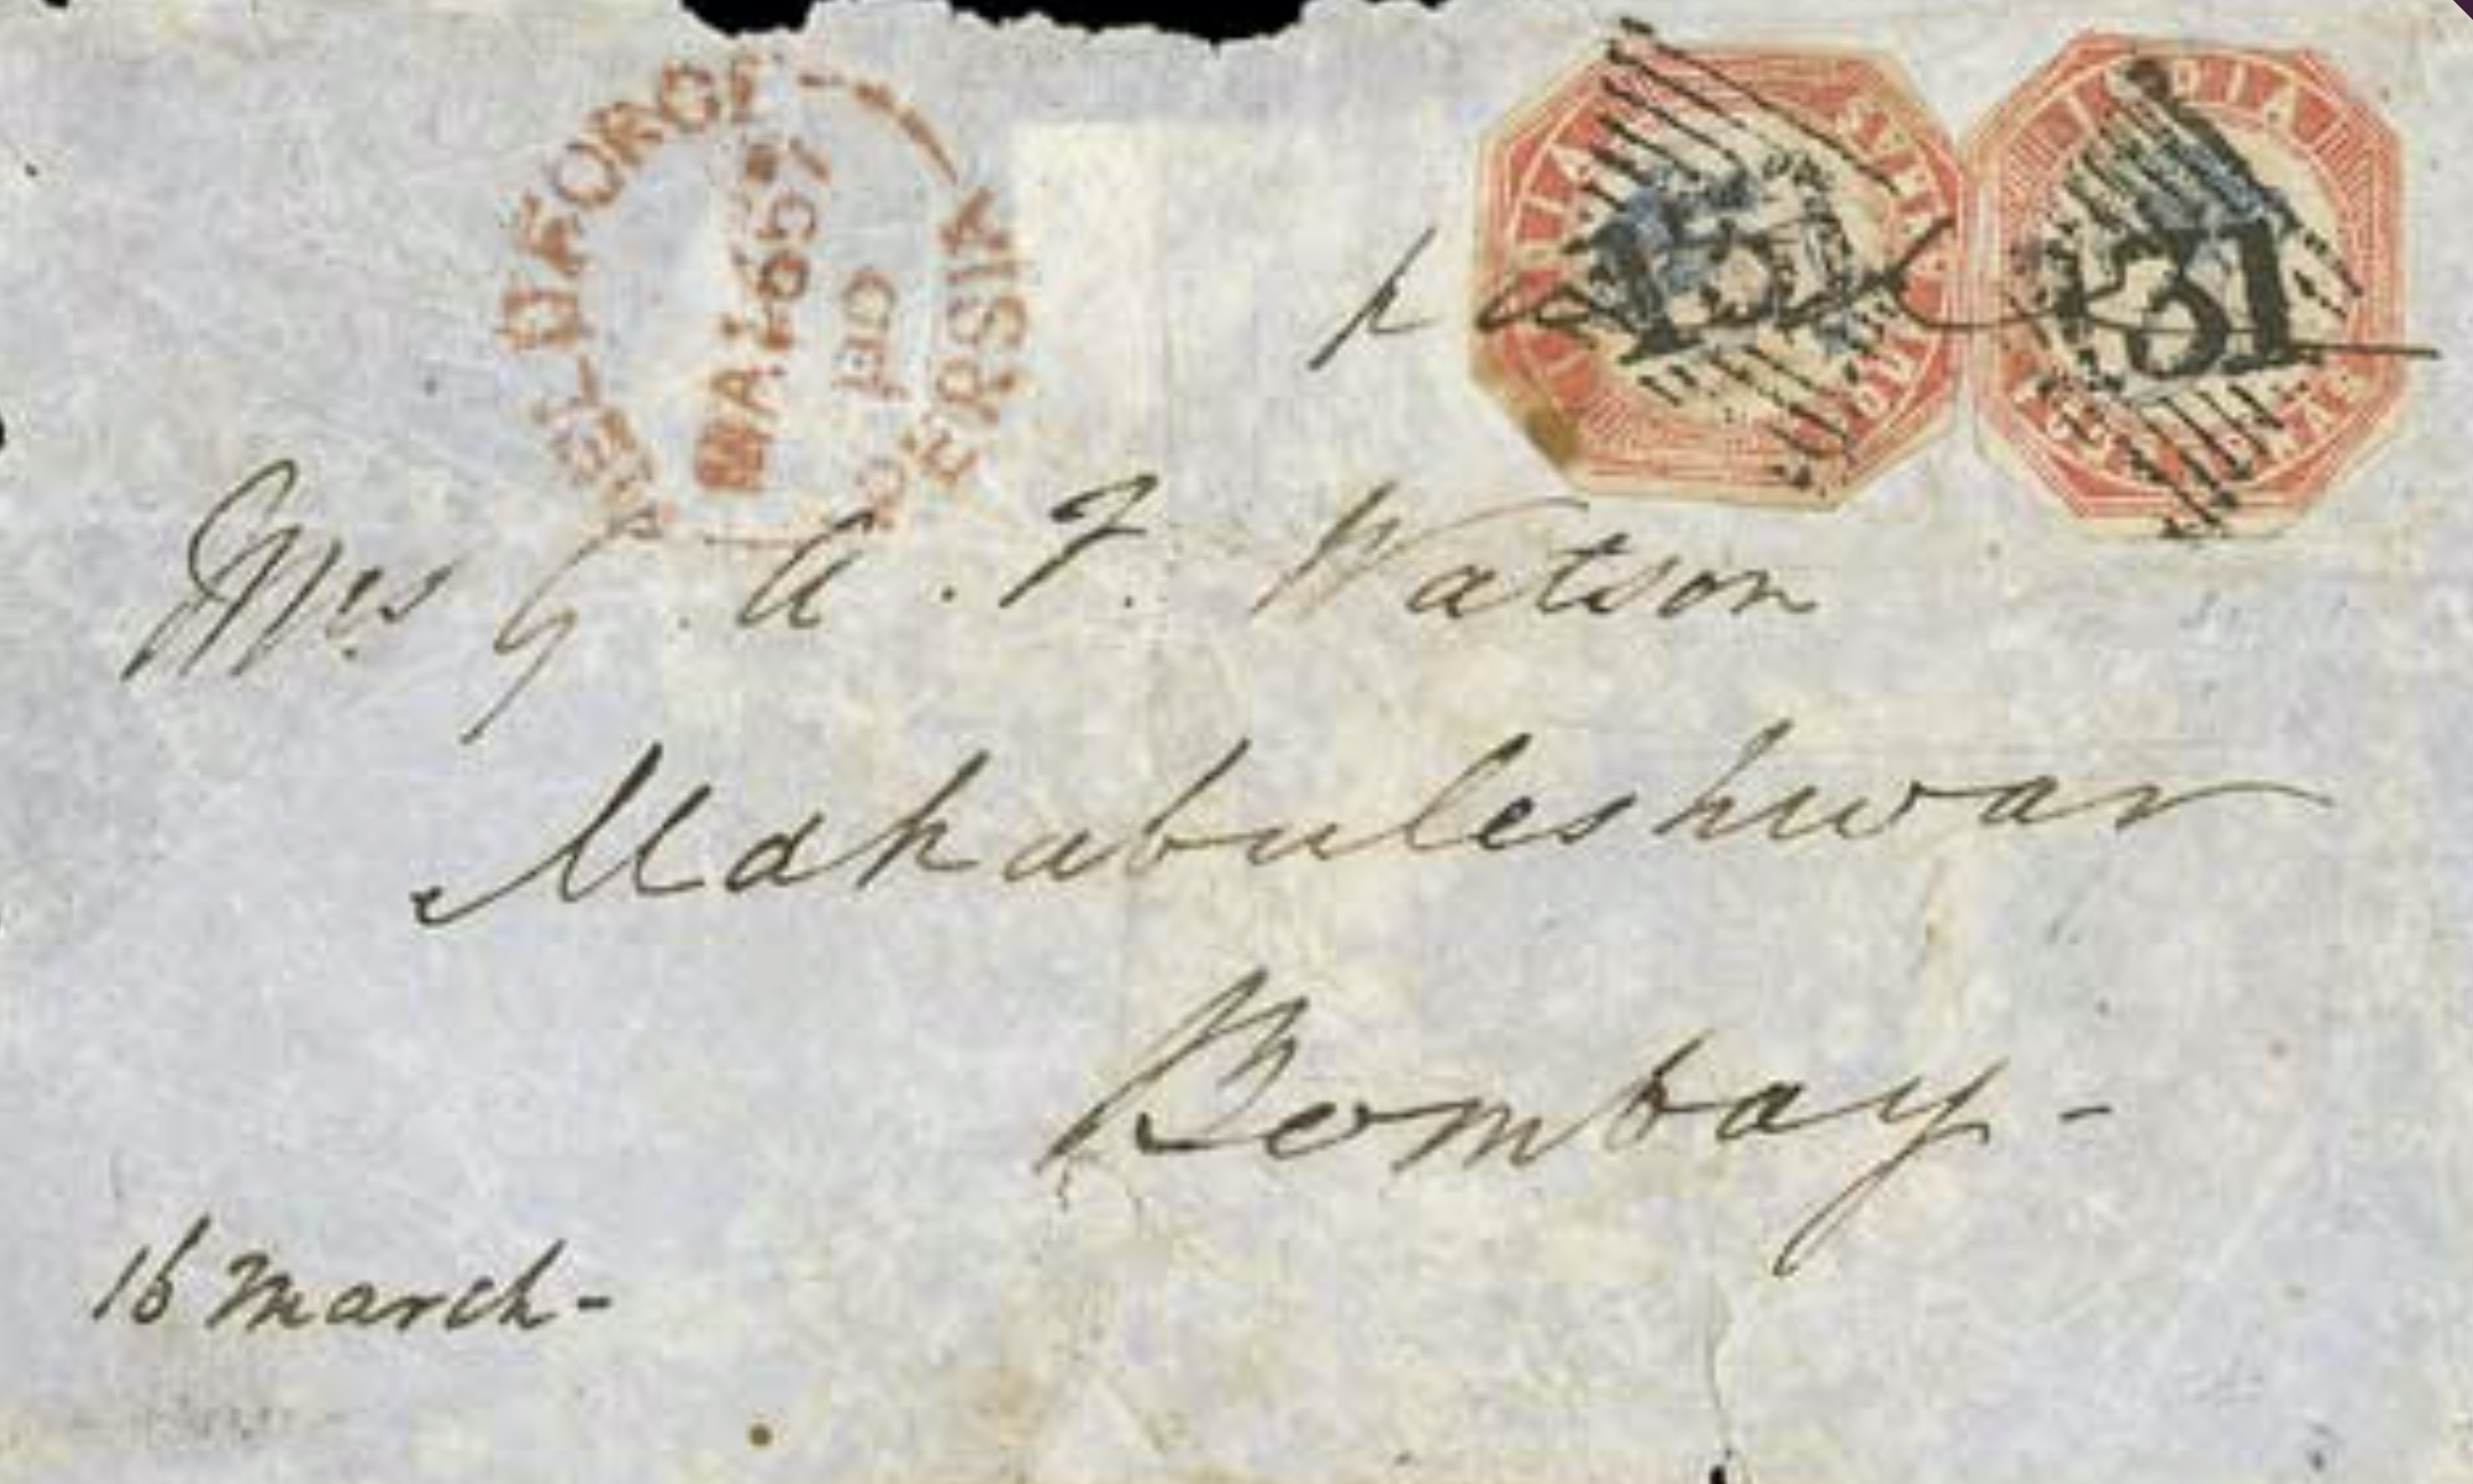 FIELD FORCE
PERSIA
MA 16 57
PD
INDIA
131
Mrs G. A. F. Watson
Mahabuleshwar
Bombay -
16 March -